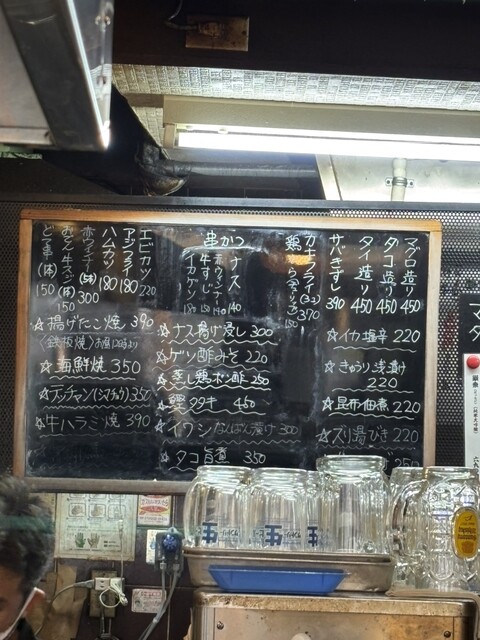 マグロ造り 450
タコ造り 450
タイ造り 450
サバきずし 390
カキフライ(3コ) 370
串かつ
ナス 140
牛すじ 150
イカゲソ 180
エビカツ 220
アジフライ 180
ハムカツ 180
赤ウインナー (5本) 300
どて串(1本) 150
☆イカ塩辛 220
☆きゅうり浅漬け 220
☆昆布佃煮 220
☆ズリ湯びき 220
250
☆ナス揚げ浸し 300
☆ゲソ酢みそ 220
☆蒸し鶏ポン酢 250
☆鰹タタキ 450
☆イワシなんばん漬け 300
☆タコ旨煮 350
☆揚げたこ焼 390
☆海鮮焼 350
☆テッチャン(シマチョウ) 350
☆牛ハラミ焼 390